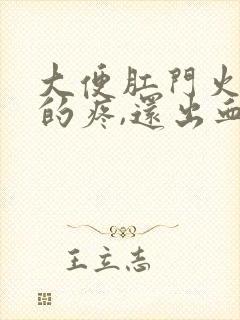 大便肛門火
的疼,還出血
王立志